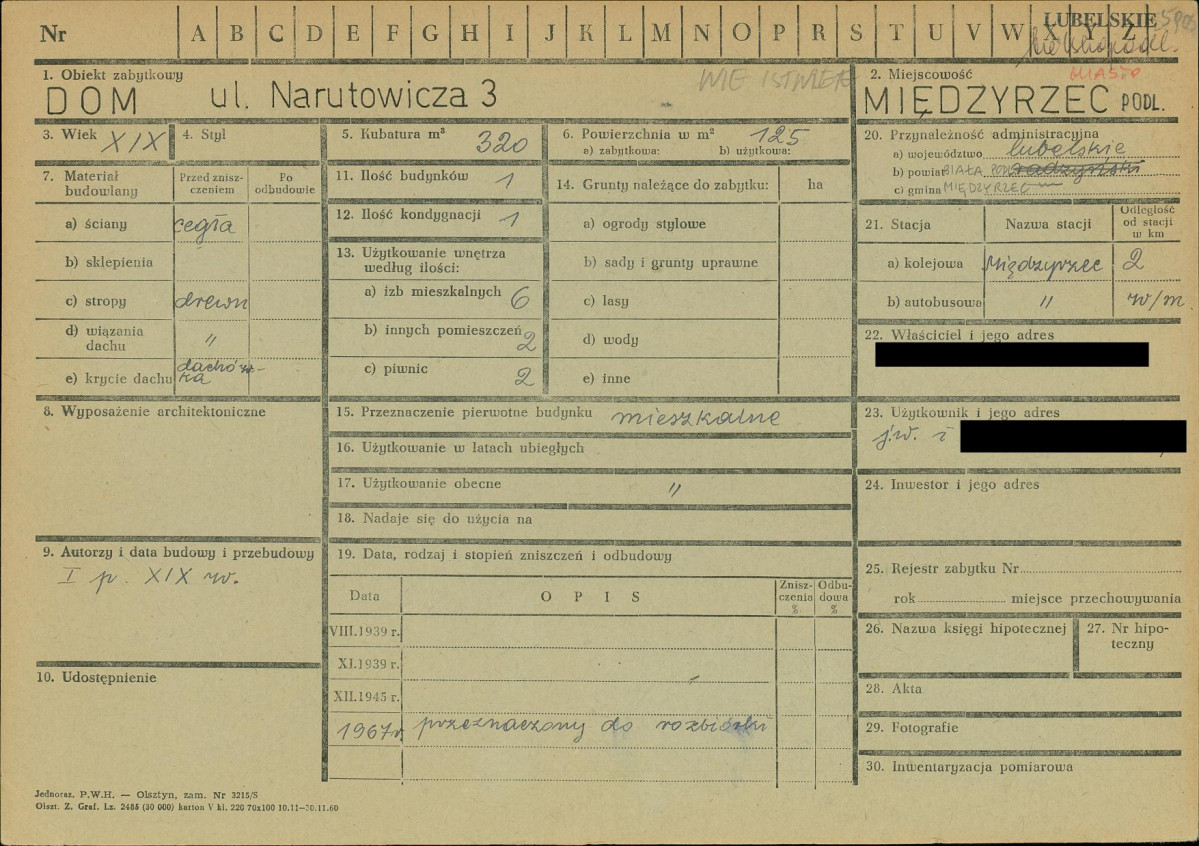 Nr A B C D E F G H I J K L M N O P R S T U V W X Y Z
LUBELSKIE
NIE ISTNIEJE
MIASTO
1. Obiekt zabytkowy
DOM ul. Narutowicza 3
2. Miejscowość
MIĘDZYRZEC PODL.
3. Wiek XIX
4. Styl
5. Kubatura m³ 320
6. Powierzchnia w m² 125
a) zabytkowa: b) użytkowa:
7. Materiał budowlany
Przed zniszczeniem
Po odbudowie
a) ściany cegła
b) sklepienia
c) stropy drewn
d) wiązania dachu "
e) krycie dachu dachówka
8. Wyposażenie architektoniczne
9. Autorzy i data budowy i przebudowy
I p. XIX w.
10. Udostępnienie
11. Ilość budynków 1
12. Ilość kondygnacji 1
13. Użytkowanie wnętrza
według ilości:
a) izb mieszkalnych 6
b) innych pomieszczeń 2
c) piwnic 2
14. Grunty należące do zabytku: ha
a) ogrody stylowe
b) sady i grunty uprawne
c) lasy
d) wody
e) inne
15. Przeznaczenie pierwotne budynku mieszkalne
16. Użytkowanie w latach ubiegłych
17. Użytkowanie obecne "
18. Nadaje się do użycia na
19. Data, rodzaj i stopień zniszczeń i odbudowy
Data OPIS Zniszczenia % Odbudowa %
VIII.1939 r.
XI.1939 r.
XII.1945 r.
1967 r przeznaczony do rozbiórki
20. Przynależność administracyjna
a) województwo lubelskie
b) powiat BIAŁA PODL radzyński
c) gmina MIĘDZYRZEC
21. Stacja Nazwa stacji Odległość od stacji w km
a) kolejowa Międzyrzec 2
b) autobusowa " w/m
22. Właściciel i jego adres
23. Użytkownik i jego adres
j.w. i
24. Inwestor i jego adres
25. Rejestr zabytku Nr
rok miejsce przechowywania
26. Nazwa księgi hipotecznej
27. Nr hipoteczny
28. Akta
29. Fotografie
30. Inwentaryzacja pomiarowa
Jednoraz. P.W.H. — Olsztyn, zam. Nr 3215/S
Olszt. Z. Graf. Lz. 2485 (30 000) karton V kl. 220 70x100 10.11—30.11.60